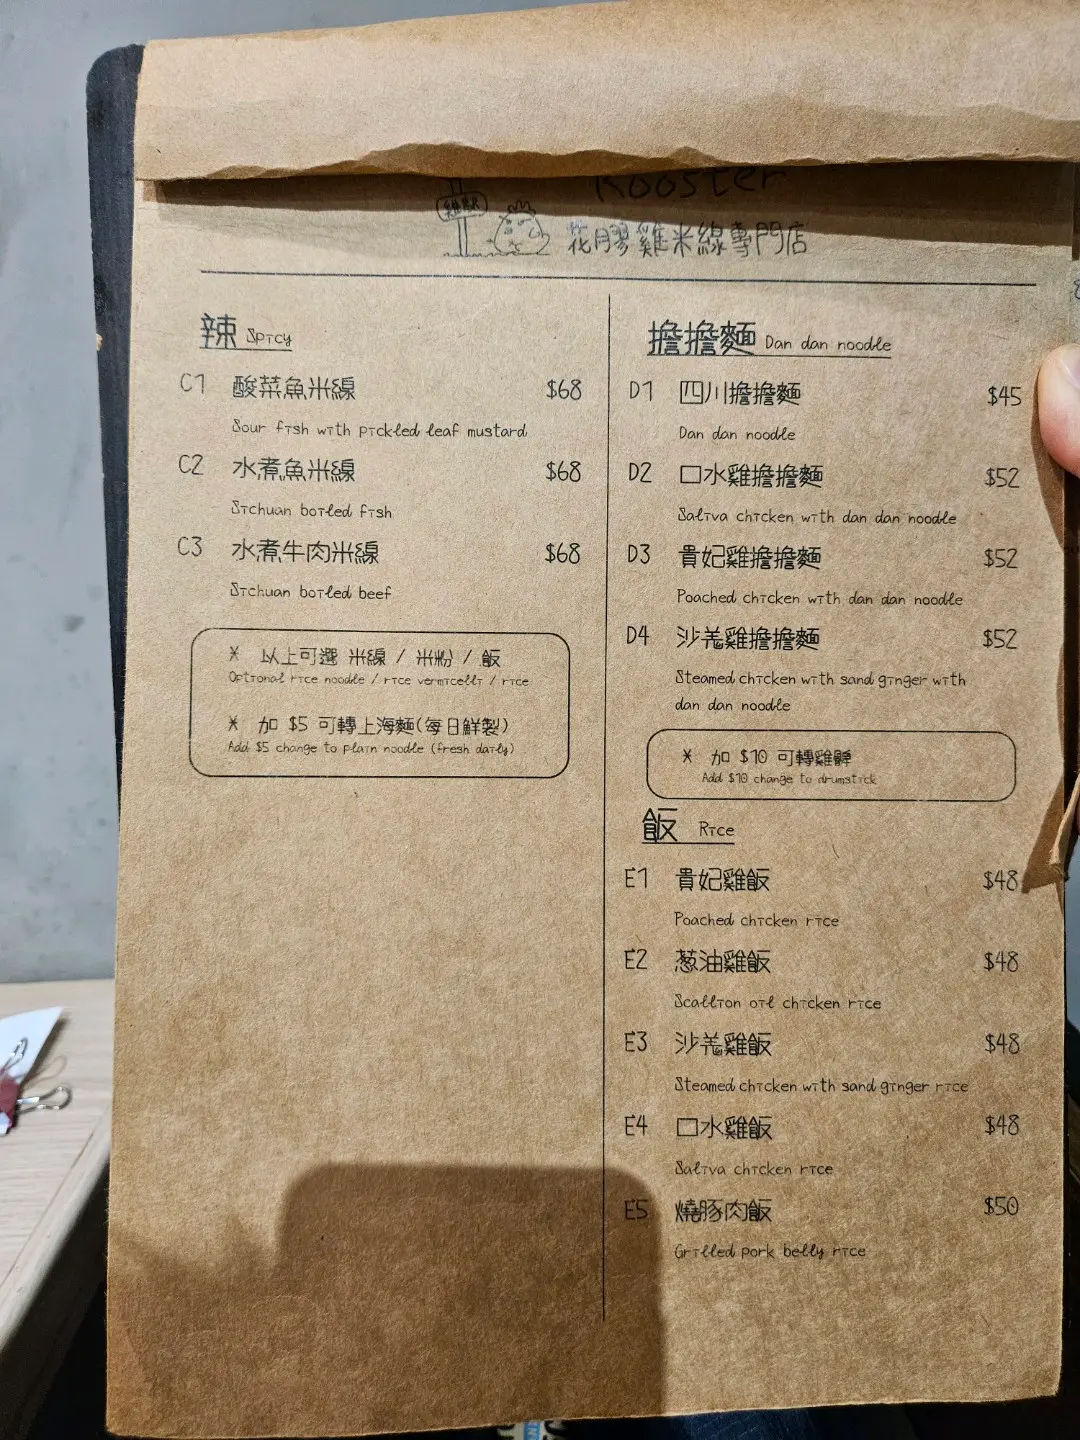 Rooster
雞架
花膠雞米線專門店
辣 Spicy
C1 酸菜魚米線 $68
Sour fish with pickled leaf mustard
C2 水煮魚米線 $68
Sichuan boiled fish
C3 水煮牛肉米線 $68
Sichuan boiled beef
* 以上可選 米線 / 米粉 / 飯
Optional rice noodle / rice vermicelli / rice
* 加 $5 可轉上海麵(每日鮮製)
Add $5 change to plain noodle (fresh daily)
擔擔麵 Dan dan noodle
D1 四川擔擔麵 $45
Dan dan noodle
D2 口水雞擔擔麵 $52
Saliva chicken with dan dan noodle
D3 貴妃雞擔擔麵 $52
Poached chicken with dan dan noodle
D4 沙羗雞擔擔麵 $52
Steamed chicken with sand ginger with
dan dan noodle
* 加 $10 可轉雞髀
Add $10 change to drumstick
飯 Rice
E1 貴妃雞飯 $48
Poached chicken rice
E2 葱油雞飯 $48
Scallion oil chicken rice
E3 沙羗雞飯 $48
Steamed chicken with sand ginger rice
E4 口水雞飯 $48
Saliva chicken rice
E5 燒豚肉飯 $50
Grilled pork belly rice